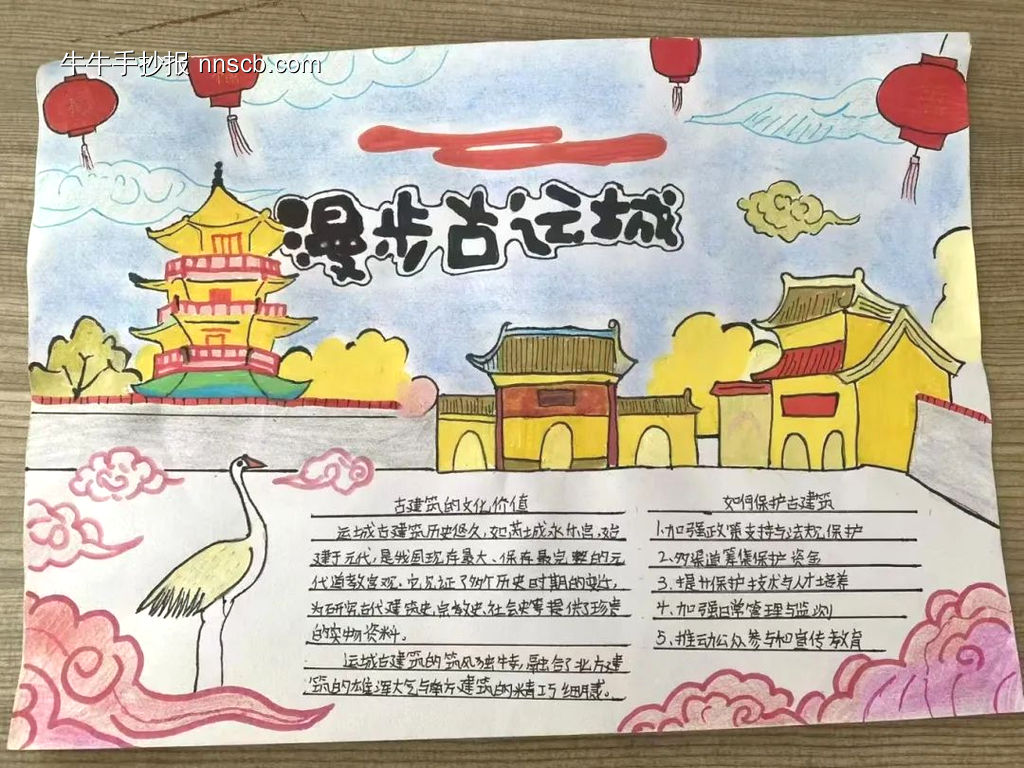 牛牛手抄报 nnscb.com
漫步古运城
古建筑的文化价值
运城古建筑历史悠久,如芮城永乐宫,始
建于元代,是我国现存最大、保存最完整的元
代道教宫观.它见证了多个历史时期的变迁,
为研究古代建筑史,宗教史,社会史等提供了珍贵
的实物资料。
运城古建筑的筑风独特,融合了北方建
筑的雄浑大气与南方建筑的精巧细腻。
如何保护古建筑
1.加强政策支持与法规保护
2.多渠道筹集保护资金
3.提升保护技术与人才培养
4.加强日常管理与监测
5.推动公众参与和宣传教育